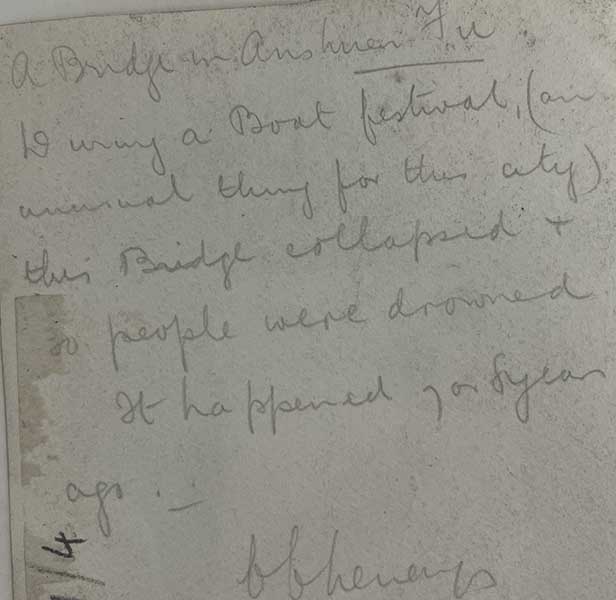 A Bridge in Anshuen Fu.
During a Boat festival, (an
unusual thing for this city)
this Bridge collapsed +
people were drowned
It happened 7 or 8 years
ago. —
1/4